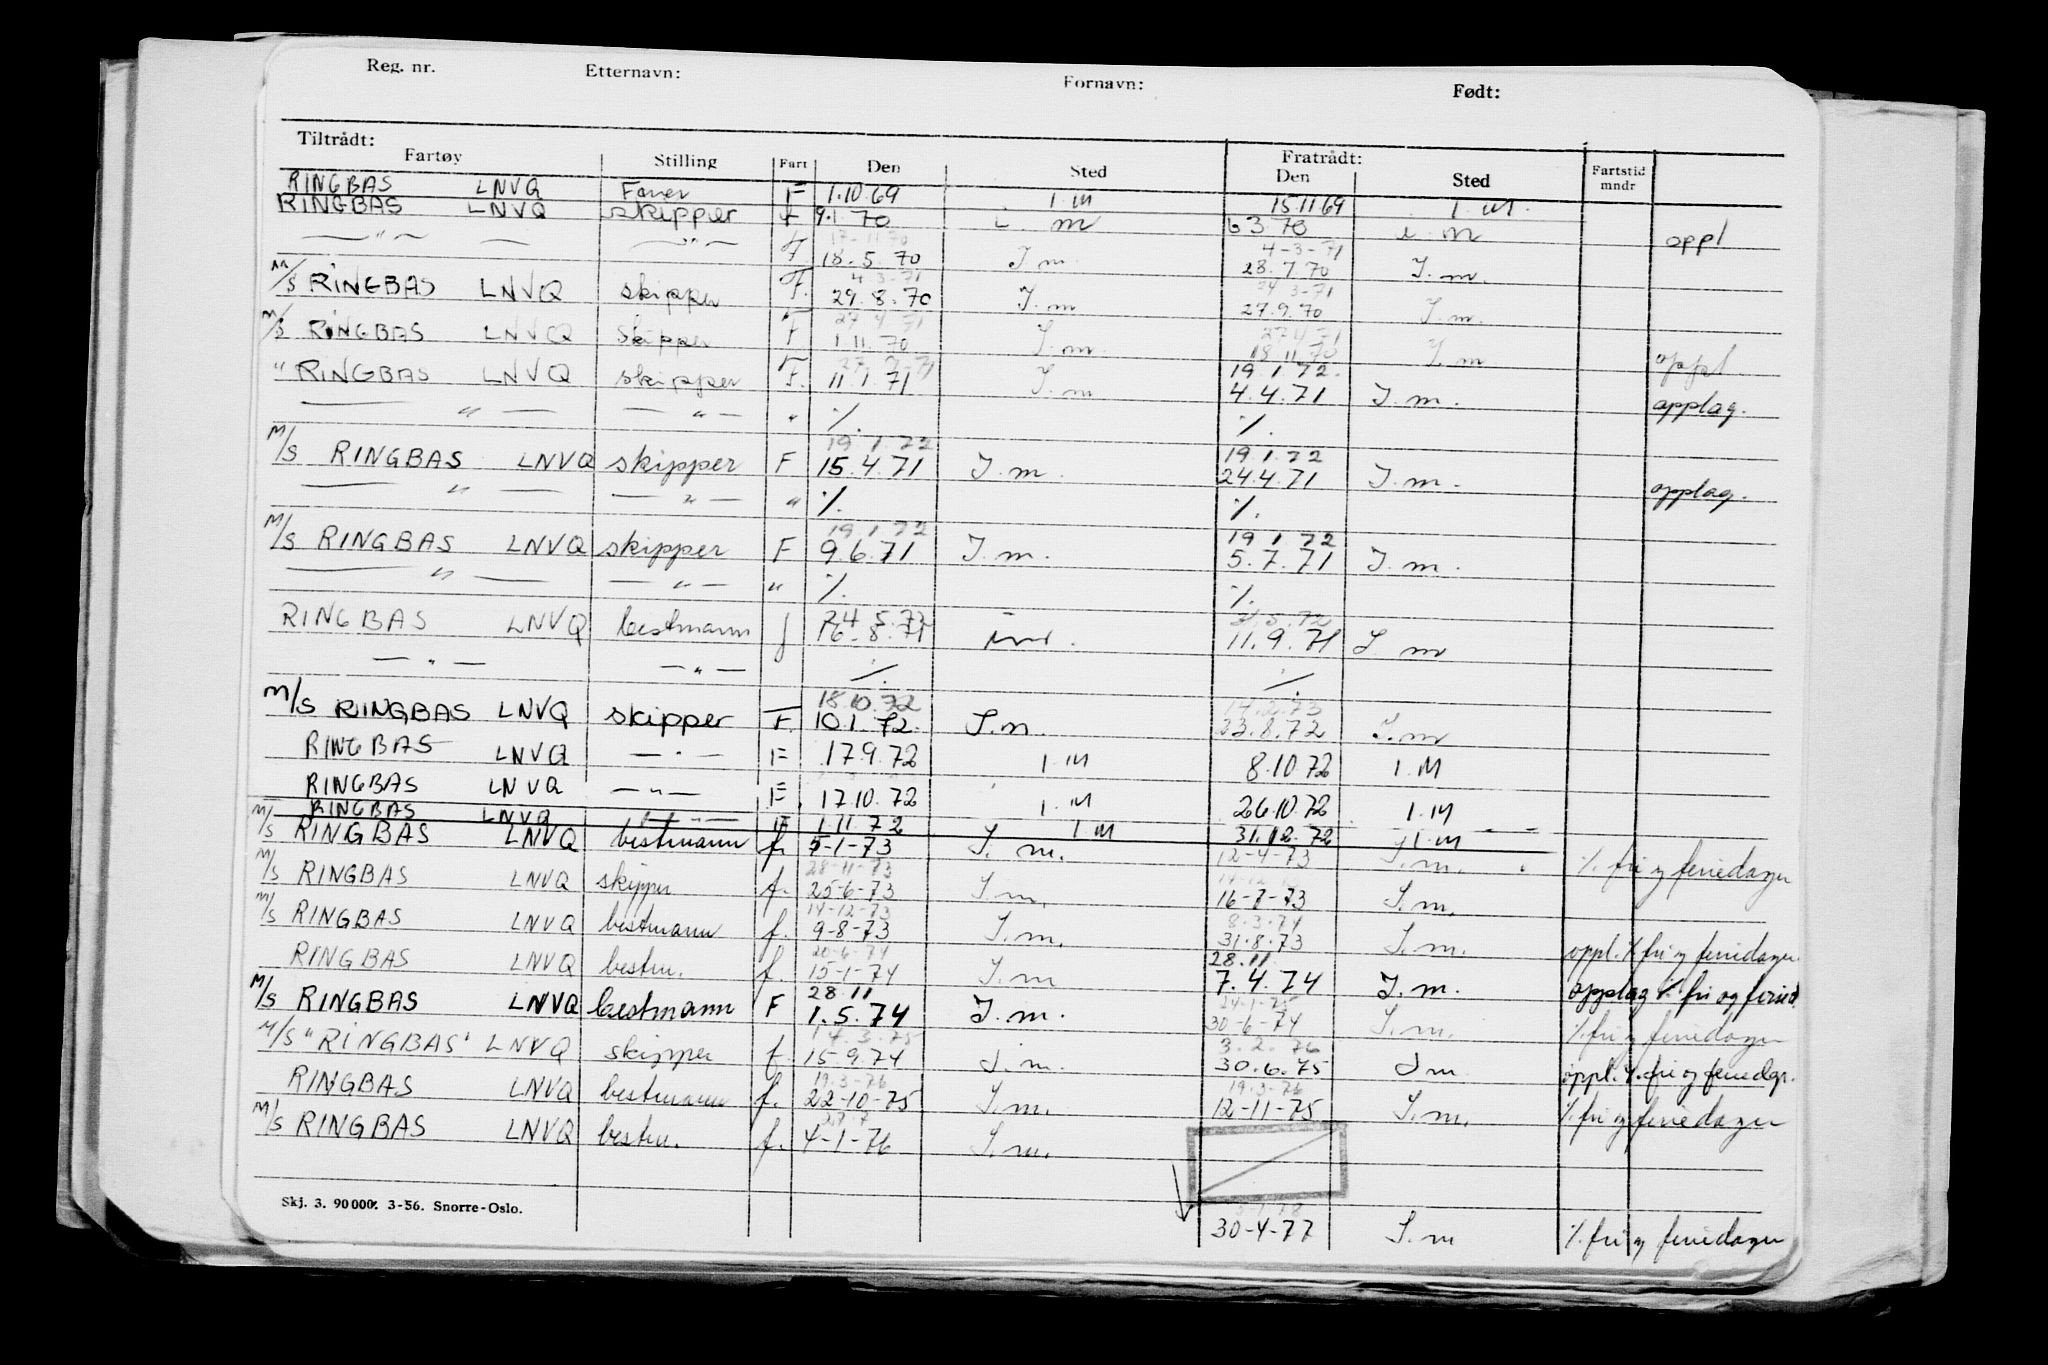 Reg. nr. Etternavn: Fornavn: Født:
Tiltrådt: Fratrådt:
Fartøy Stilling Fart Den Sted Den Sted Fartstid mndr
RINGBAS LNVQ Fører F 1.10.69 I.M 15.11.69 I.M.
RINGBAS LNVQ skipper F 9.1.70 i.m 6 3.70 i.m oppl
— " — — — " — 17-11-70 4-3-71
F. 18.5.70 I.m. 28.7.70 I.m.
M/S RINGBAS LNVQ skipper F. 4-3-71 29.8.70 I.m 24 3-71 27.9.70 I.m.
M/S RINGBAS LNVQ skipper F 27 4 71 1.11.70 I.m. 27 4 71 18.11.70 I.m oppl
" RINGBAS LNVQ skipper F. 11.1.71 I.m 19 1 72. 4.4.71 I.m. opplag.
— " — — " — " ٪. ٪.
M/S RINGBAS LNVQ skipper F 19 1.72 15.4.71 I.m. 19 1.72 24.4.71 I.m. opplag.
— " — — " — " ٪. ٪.
M/S RINGBAS LNVQ skipper F 19 1 72 9.6.71 I.m. 19 1 72 5.7.71 I.m.
— " — — " — " ٪. ٪.
RINGBAS LNVQ bestmann f 24 5.72 16-8-71 11.9.71 I m
— " — — " — ٪. ٪.
M/S RINGBAS LNVQ skipper F. 18.10.72 10.1.72. I.m. 14.2.73 23.8.72 I.m
RINGBAS LNVQ — " — F 17.9.72 I.M 8.10.72 I.M
RINGBAS LNVQ — " — F. 17.10.72 I.M 26.10.72 I.M
RINGBAS LNVQ — " — F 1.11.72 I M 31.12.72 I.M
M/S RINGBAS LNVQ bestmann f. 5-1-73 I.m. 12-4-73 I.m. ٪. fri og feriedager
M/S RINGBAS LNVQ skipper f. 28-11-73 25-6-73 I.m. 16-7-73 I.m.
M/S RINGBAS LNVQ bestmann f. 14-12-73 9-8-73 I.m. 8.3.74 31.8.73 I.m. oppl. ٪ fri og feriedager.
RINGBAS LNVQ bestm. f. 20-6-74 15-1-74 I.m 28.11 7.4.74 I.m. opplag ٪ fri og feried.
M/S RINGBAS LNVQ bestmann F 28 11 1.5.74 I.m. 24-1-75 30-6-74 I.m. ٪. fri og feriedager
M/S "RINGBAS" LNVQ skipper f. 14.3.75 15.9.74 I.m. 3.2.76 30.6.75 I m oppl. ٪. fri og feriedgr.
RINGBAS LNVQ bestmann f. 19.3-76 22-10-75 I.m. 19.3-76 12-11-75 I.m. ٪. fri og feriedager
M/S RINGBAS LNVQ bestm. f. 4-1-76 I.m.
30-4-77 I.m ٪. fri og feriedager
Skj. 3. 90 000. 3-56. Snorre-Oslo.